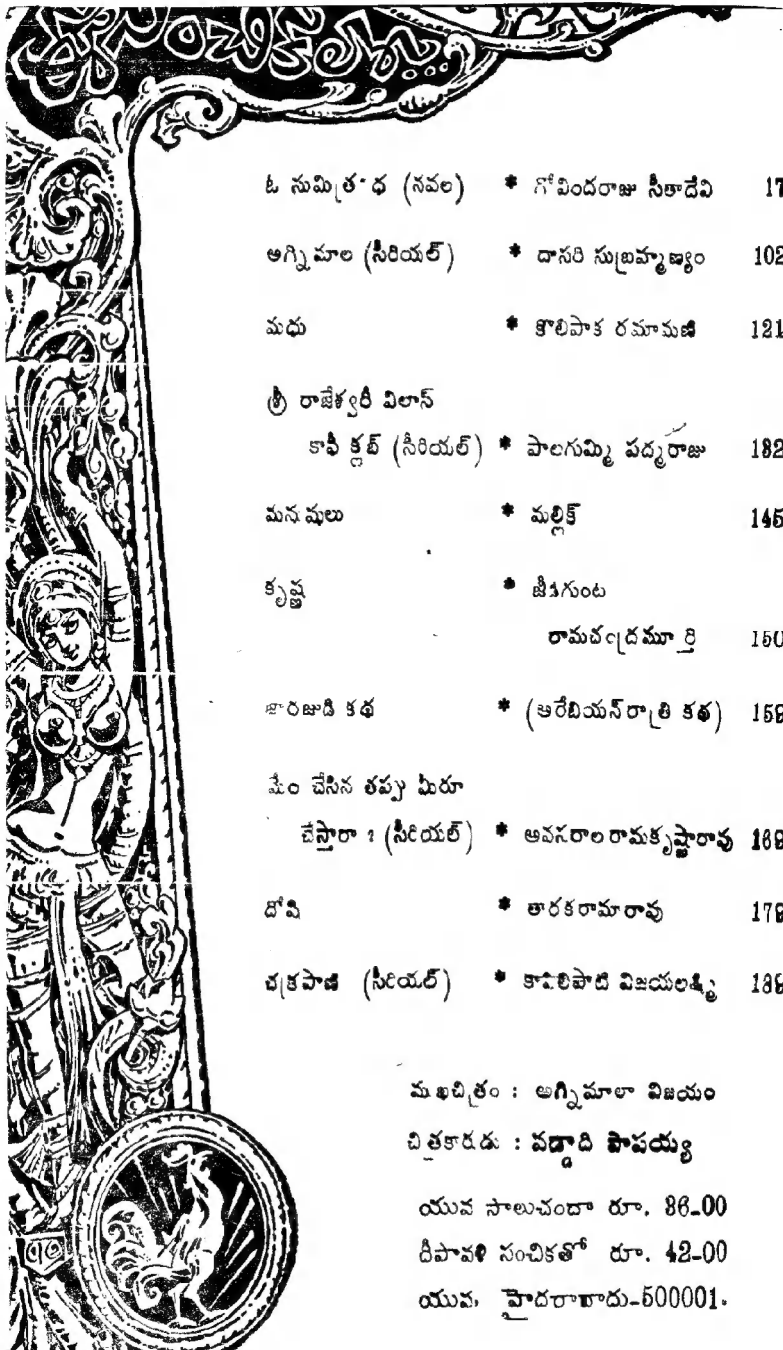 ఈ సంచికలో...
ఓ సుమిత్ర కథ (నవల) * గోవిందరాజు సీతాదేవి 17
అగ్నిమాల (సీరియల్) * దాసరి సుబ్రహ్మణ్యం 102
మధు * కొలిపాక రమామణి 121
శ్రీ రాజేశ్వరీ విలాస్
కాఫీ క్లబ్ (సీరియల్) * పాలగుమ్మి పద్మరాజు 132
మనుషులు * మల్లిక్ 145
కృష్ణ * జీడిగుంట
రామచంద్రమూర్తి 150
జారజుడి కథ * (ఆరేబియన్ రాత్రి కథ) 159
మేం చేసిన తప్పు మీరూ
చేస్తారా : (సీరియల్) * అవసరాల రామకృష్ణారావు 169
దోషి * తారకరామారావు 179
చక్రపాణి (సీరియల్) * కావిలిపాటి విజయలక్ష్మి 189
ముఖచిత్రం : అగ్నిమాలా విజయం
చిత్రకారుడు : వడ్డాది పాపయ్య
యువ సాలుచందా రూ. 36-00
దీపావళి సంచికతో రూ. 42-00
యువ, హైదరాబాదు-500001.